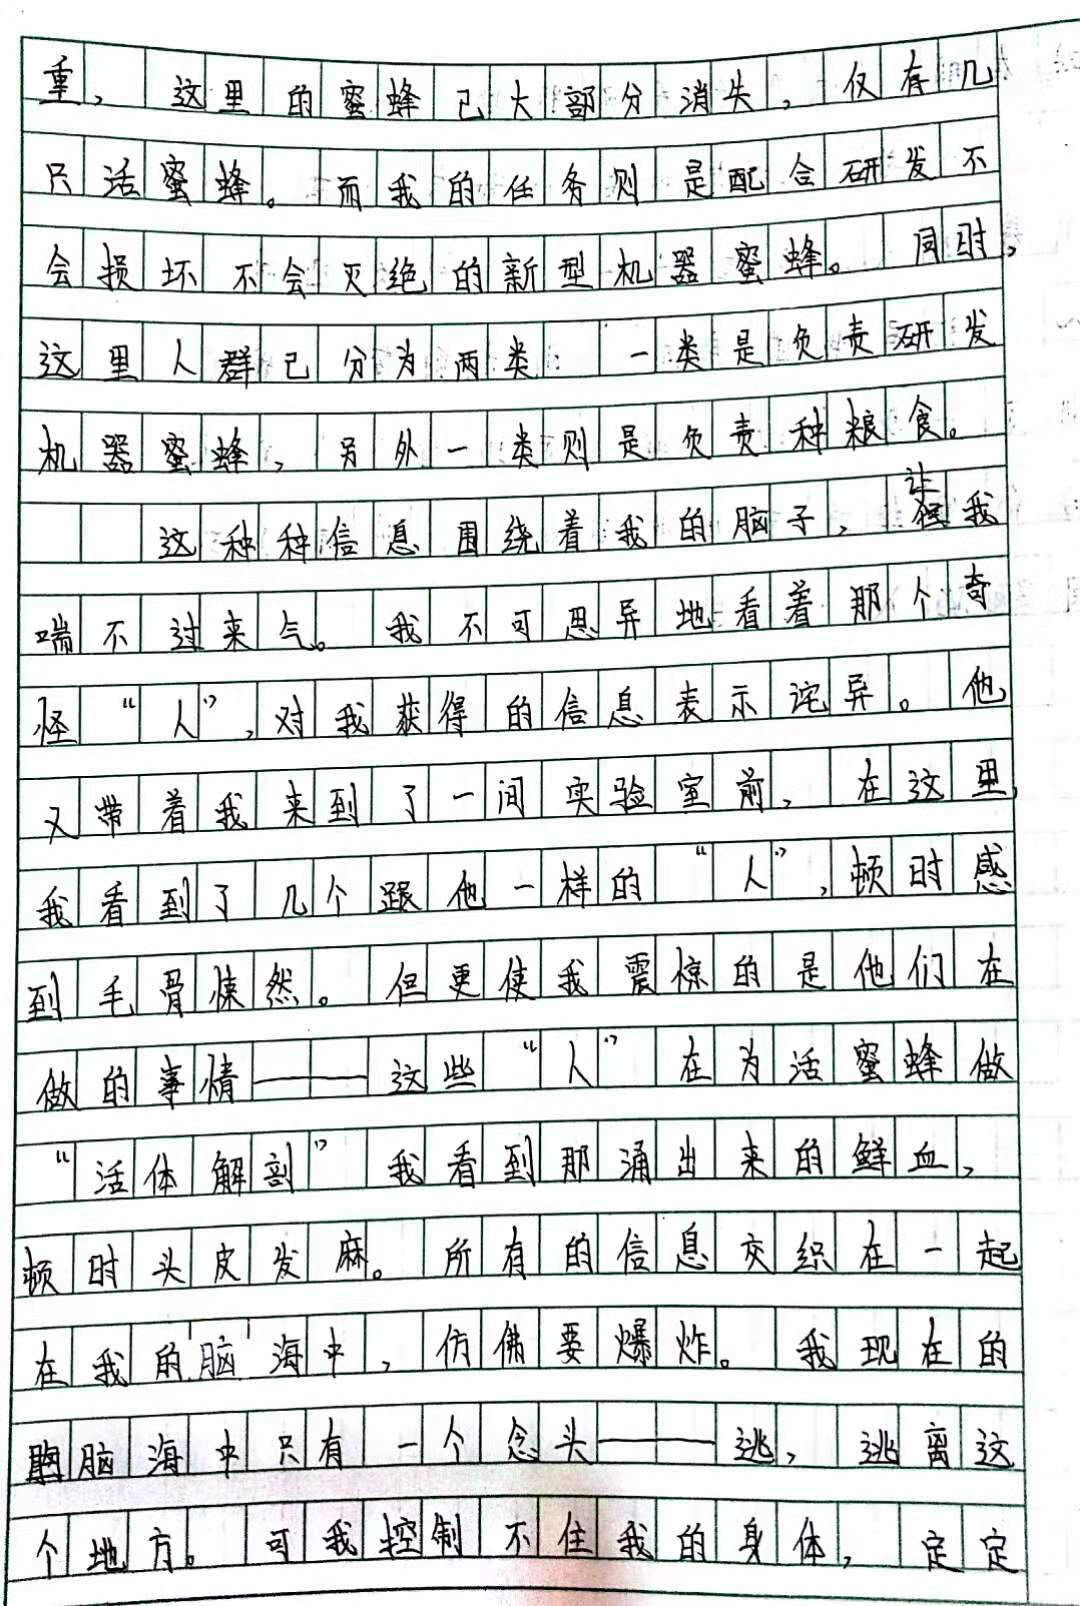 重，这里的蜜蜂已大部分消失，仅有几
只活蜜蜂。而我的任务则是配合研发不
会损坏不会灭绝的新型机器蜜蜂。同时，
这里人群已分为两类：一类是负责研发
机器蜜蜂，另外一类则是负责种粮食。
这种种信息围绕着我的脑子，让我
喘不过来气。我不可思异地看着那个奇
怪“人”，对我获得的信息表示诧异。他
又带着我来到了一间实验室前，在这里，
我看到了几个跟他一样的“人”，顿时感
到毛骨悚然。但更使我震惊的是他们在
做的事情——这些“人”在为活蜜蜂做
“活体解剖”我看到那涌出来的鲜血，
顿时头皮发麻。所有的信息交织在一起
在我的脑海中，仿佛要爆炸。我现在的
脑海中只有一个念头——逃，逃离这
个地方。可我控制不住我的身体，定定